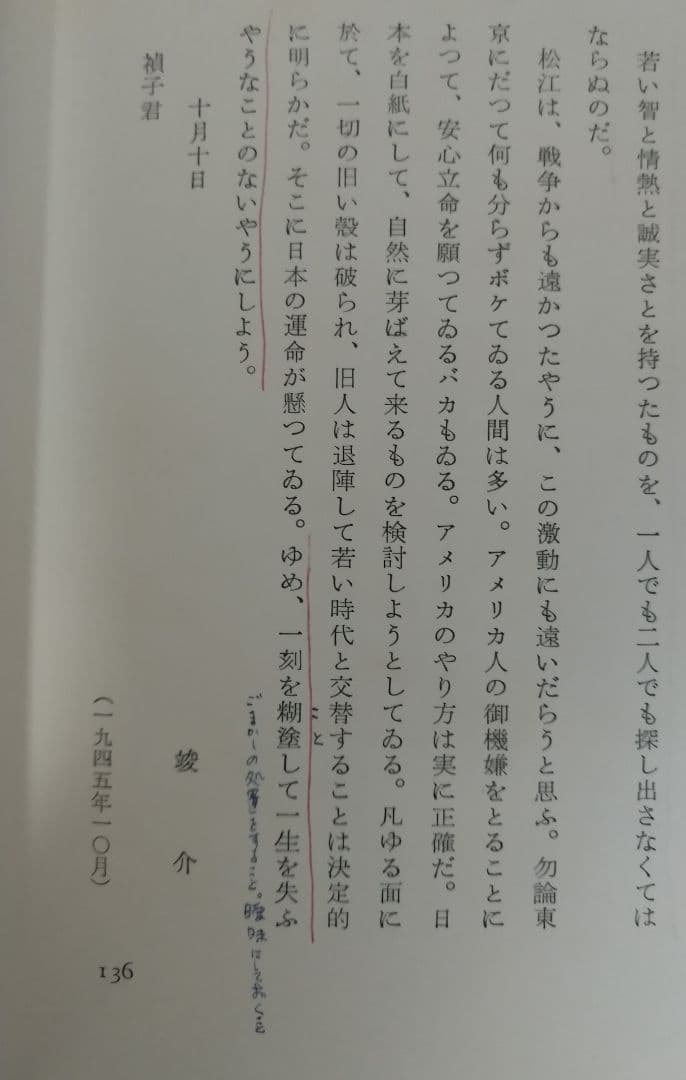 若い智と情熱と誠実さとを持つたものを、一人でも二人でも探し出さなくては
ならぬのだ。
松江は、戦争からも遠かつたやうに、この激動にも遠いだらうと思ふ。勿論東
京にだつて何も分らずボケてゐる人間は多い。アメリカ人の御機嫌をとることに
よつて、安心立命を願つてゐるバカもゐる。アメリカのやり方は実に正確だ。日
本を白紙にして、自然に芽ばえて来るものを検討しようとしてゐる。凡ゆる面に
於て、一切の旧い殻は破られ、旧人は退陣して若い時代と交替することは決定的
に明らかだ。そこに日本の運命が懸つてゐる。ゆめ、一刻を糊塗して一生を失ふ
こと
ごまかしの処置をすること。曖昧にしておくこと
やうなことのないやうにしよう。
十月十日
竣介
禎子君
(一九四五年一〇月)
136